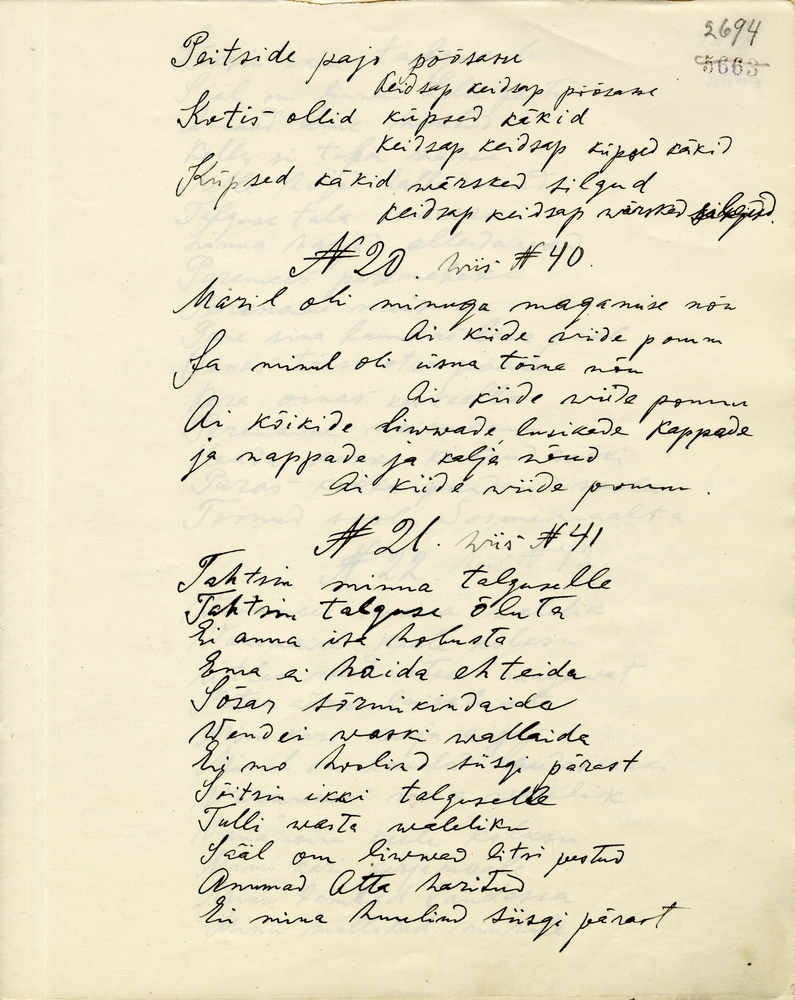 2694
5663
Peitside pajo põõsasse
keidsap keidsap põõsasse
Kotis ollid küpsed käkid
keidsap keidsap küpsed käkid
Küpsed käkid wärsked silgud
keidsap keidsap wärsked silgud.
№ 20. wiis # 40.
Maril oli minuga magamise nõu
Ai kiide wiide pomm
Ja minul oli üsna tõine nõu
Ai kiide wiide pomm
Ai kõikide liwwade, lusikade kappade
ja nappade ja kalja nõud
Ai kiide wiide pomm.
№ 21. wiis # 41
Tahtsin minna talguselle
Tahtsin talguse õluta
Ei anna isa hobusta
Ema ei häida ehteida
Sõsar sõrmikindaida
Wend ei waski wallaida
Ei mo hoolind siisgi pärast
Sõitsin ikki talguselle
Tulli wasta waleliku
Sääl om liwwad litsi pestud
Anumad Atta haritud
Ei mina huulind siisgi pärast